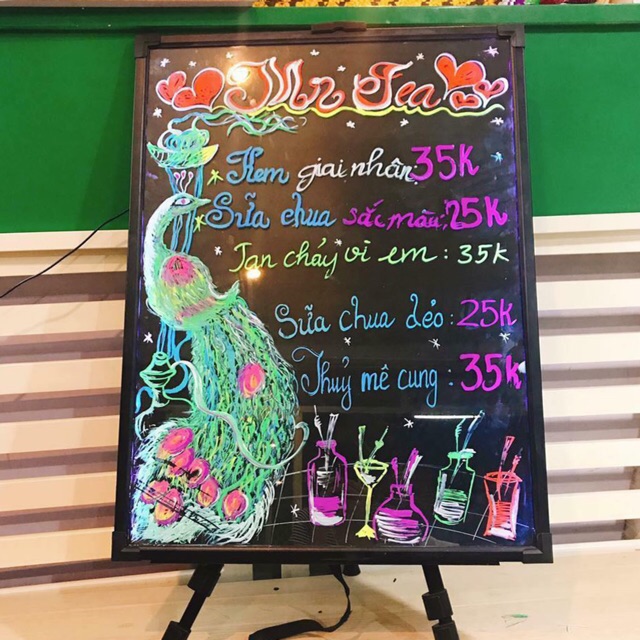 Mr Tea
Kem giai nhân 35K
Sữa chua sắc màu: 25K
Tan chảy vì em : 35K
Sữa chua dẻo : 25K
Thuỷ mê cung : 35K